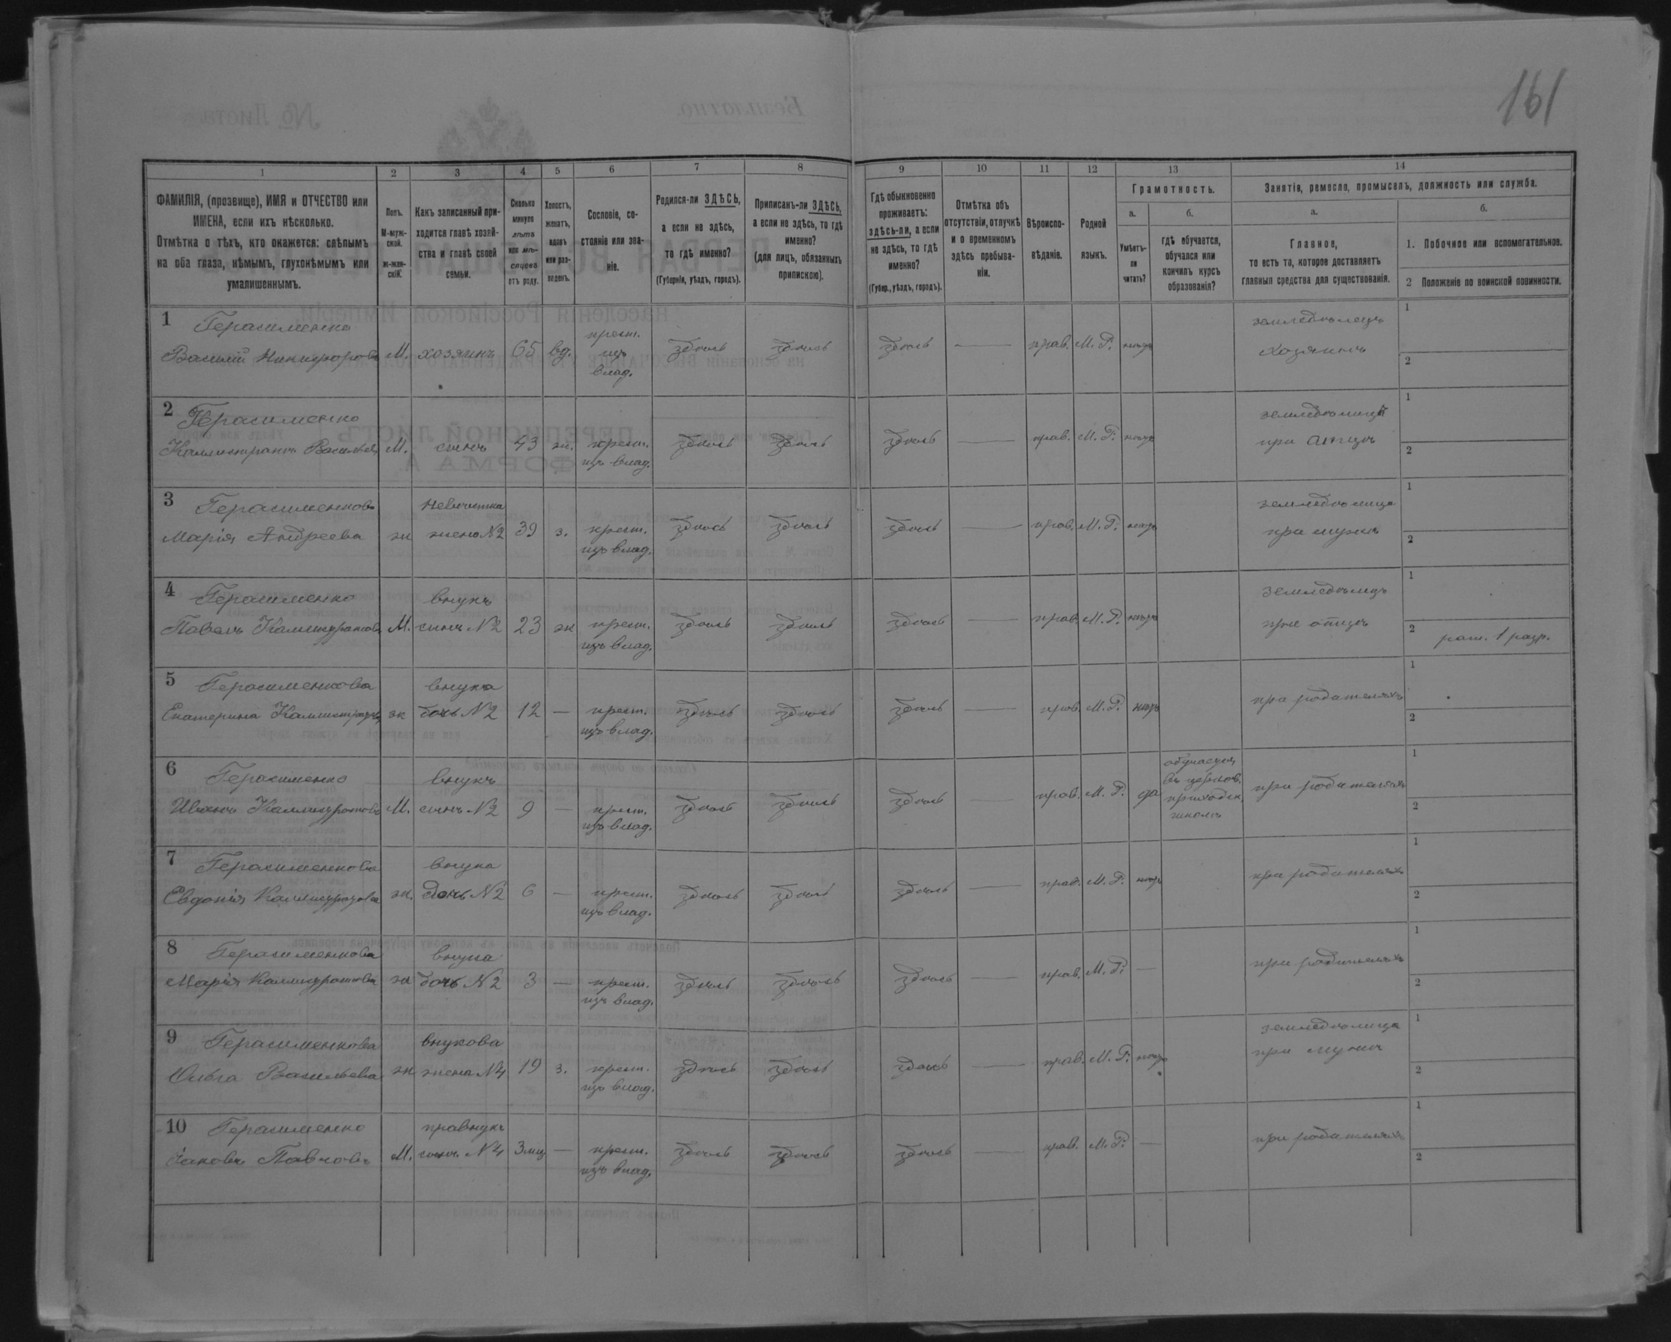 161
1 2 3 4 5 6 7 8 9 10 11 12 13 14
ФАМИЛІЯ, (прозвище), ИМЯ и ОТЧЕСТВО или
ИМЕНА, если ихъ нѣсколько.
Отмѣтка о тѣхъ, кто окажется: слѣпымъ
на оба глаза, нѣмымъ, глухонѣмымъ или
умалишеннымъ.
Полъ.
М-муж-
ской.
ж-жен-
скій.
Какъ записанный при-
ходится главѣ хозяй-
ства и главѣ своей
семьи.
Сколько
минуло
лѣтъ
или мѣ-
сяцевъ
отъ роду.
Холостъ,
женатъ,
вдовъ
или раз-
веденъ.
Сословіе, со-
стояніе или зва-
ніе.
Родился-ли ЗДѢСЬ,
а если не здѣсь,
то гдѣ именно?
(Губернія, уѣздъ, городъ).
Приписанъ-ли ЗДѢСЬ,
а если не здѣсь, то гдѣ
именно?
(для лицъ, обязанныхъ
припискою).
Гдѣ обыкновенно
проживаетъ:
здѣсь-ли, а если
не здѣсь, то гдѣ
именно?
(Губер., уѣздъ, городъ).
Отмѣтка объ
отсутствіи, отлучкѣ
и о временномъ
здѣсь пребыва-
ніи.
Вѣроиспо-
вѣданіе.
Родной
языкъ.
Грамотность.
а.
Умѣетъ-
ли
читать?
б.
гдѣ обучается,
обучался или
кончилъ курсъ
образованія?
Занятія, ремесло, промыселъ, должность или служба.
а.
Главное,
то есть то, которое доставляетъ
главныя средства для существованія.
б.
1. Побочное или вспомогательное.
2 Положеніе по воинской повинности.
1 Герасименко
Василій Никифоровъ М. хозяинъ 65 вд. крест. изъ влад. здѣсь здѣсь здѣсь — прав. М. Р. нѣтъ земледѣлецъ хозяинъ 1 2
2 Герасименко
М. сынъ 43 ж. крест. изъ влад. здѣсь здѣсь здѣсь — прав. М. Р. нѣтъ при отцѣ 1 2
3 Герасименкова
Марія Андреева ж невѣстка жена №2 39 з. крест. изъ влад. здѣсь здѣсь здѣсь — прав. М. Р. нѣтъ земледѣлица при мужѣ 1 2
4 Герасименко
Павелъ М. внукъ сынъ №2 23 ж крест. изъ влад. здѣсь здѣсь здѣсь — прав. М. Р. нѣтъ земледѣлецъ при отцѣ 1 2 рат. 1 разр.
5 Герасименкова
Екатерина ж внука дочь №2 12 — крест. изъ влад. здѣсь здѣсь здѣсь — прав. М. Р. нѣтъ при родителяхъ 1 2
6 Герасименко
Иванъ М. внукъ сынъ №2 9 — крест. изъ влад. здѣсь здѣсь здѣсь — прав. М. Р. да обучается въ церков. приходск. школѣ при родителяхъ 1 2
7 Герасименкова
Евдокія ж. внука дочь №2 6 — крест. изъ влад. здѣсь здѣсь здѣсь — прав. М. Р. нѣтъ при родителяхъ 1 2
8 Герасименкова
Марія ж внука дочь №2 3 — крест. изъ влад. здѣсь здѣсь здѣсь — прав. М. Р. — при родителяхъ 1 2
9 Герасименкова
Ольга Васильева ж внукова жена №4 19 з. крест. изъ влад. здѣсь здѣсь здѣсь — прав. М. Р. нѣтъ земледѣлица при мужѣ 1 2
10 Герасименко
Яковъ Павловъ М. правнукъ сынъ №4 3 мц — крест. изъ влад. здѣсь здѣсь здѣсь — прав. М. Р. — при родителяхъ 1 2